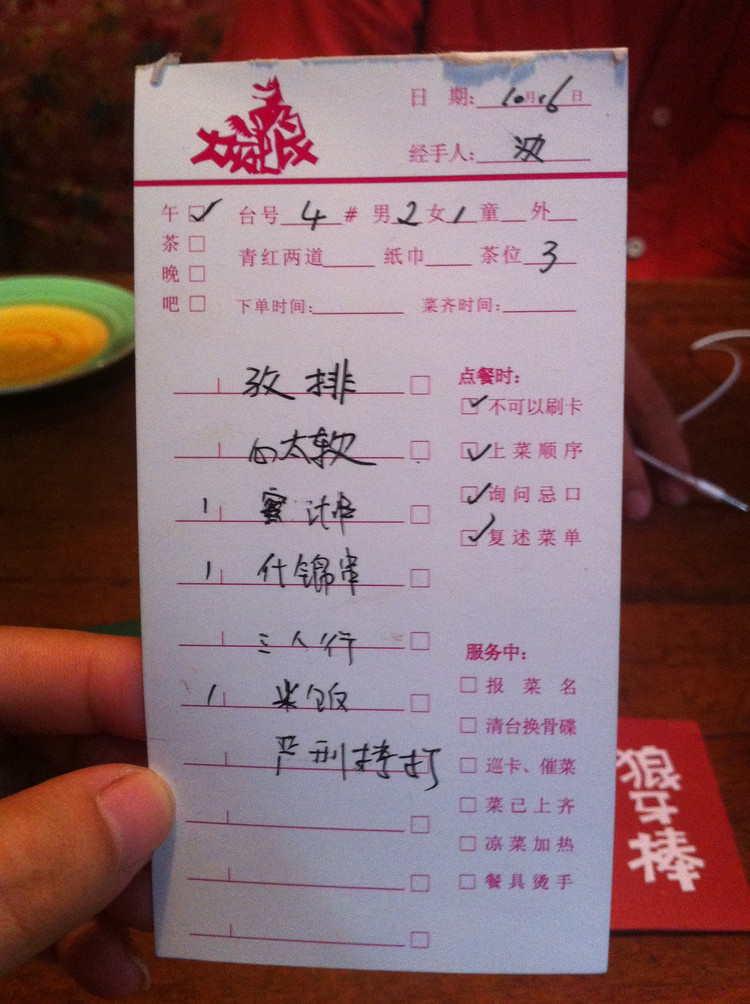 日 期: 10月16日
经手人:
午 ✓ 台号 4 # 男 2 女 1 童 外
茶 青红两道 纸巾 茶位 3
晚
吧 下单时间: 菜齐时间:
排
心太软
1 蜜 串
1 什锦串
三人行
1 米饭
严刑拷打
点餐时:
✓ 不可以刷卡
✓ 上菜顺序
✓ 询问忌口
✓ 复述菜单
服务中:
报菜名
清台换骨碟
巡卡、催菜
菜已上齐
凉菜加热
餐具烫手
狼牙棒